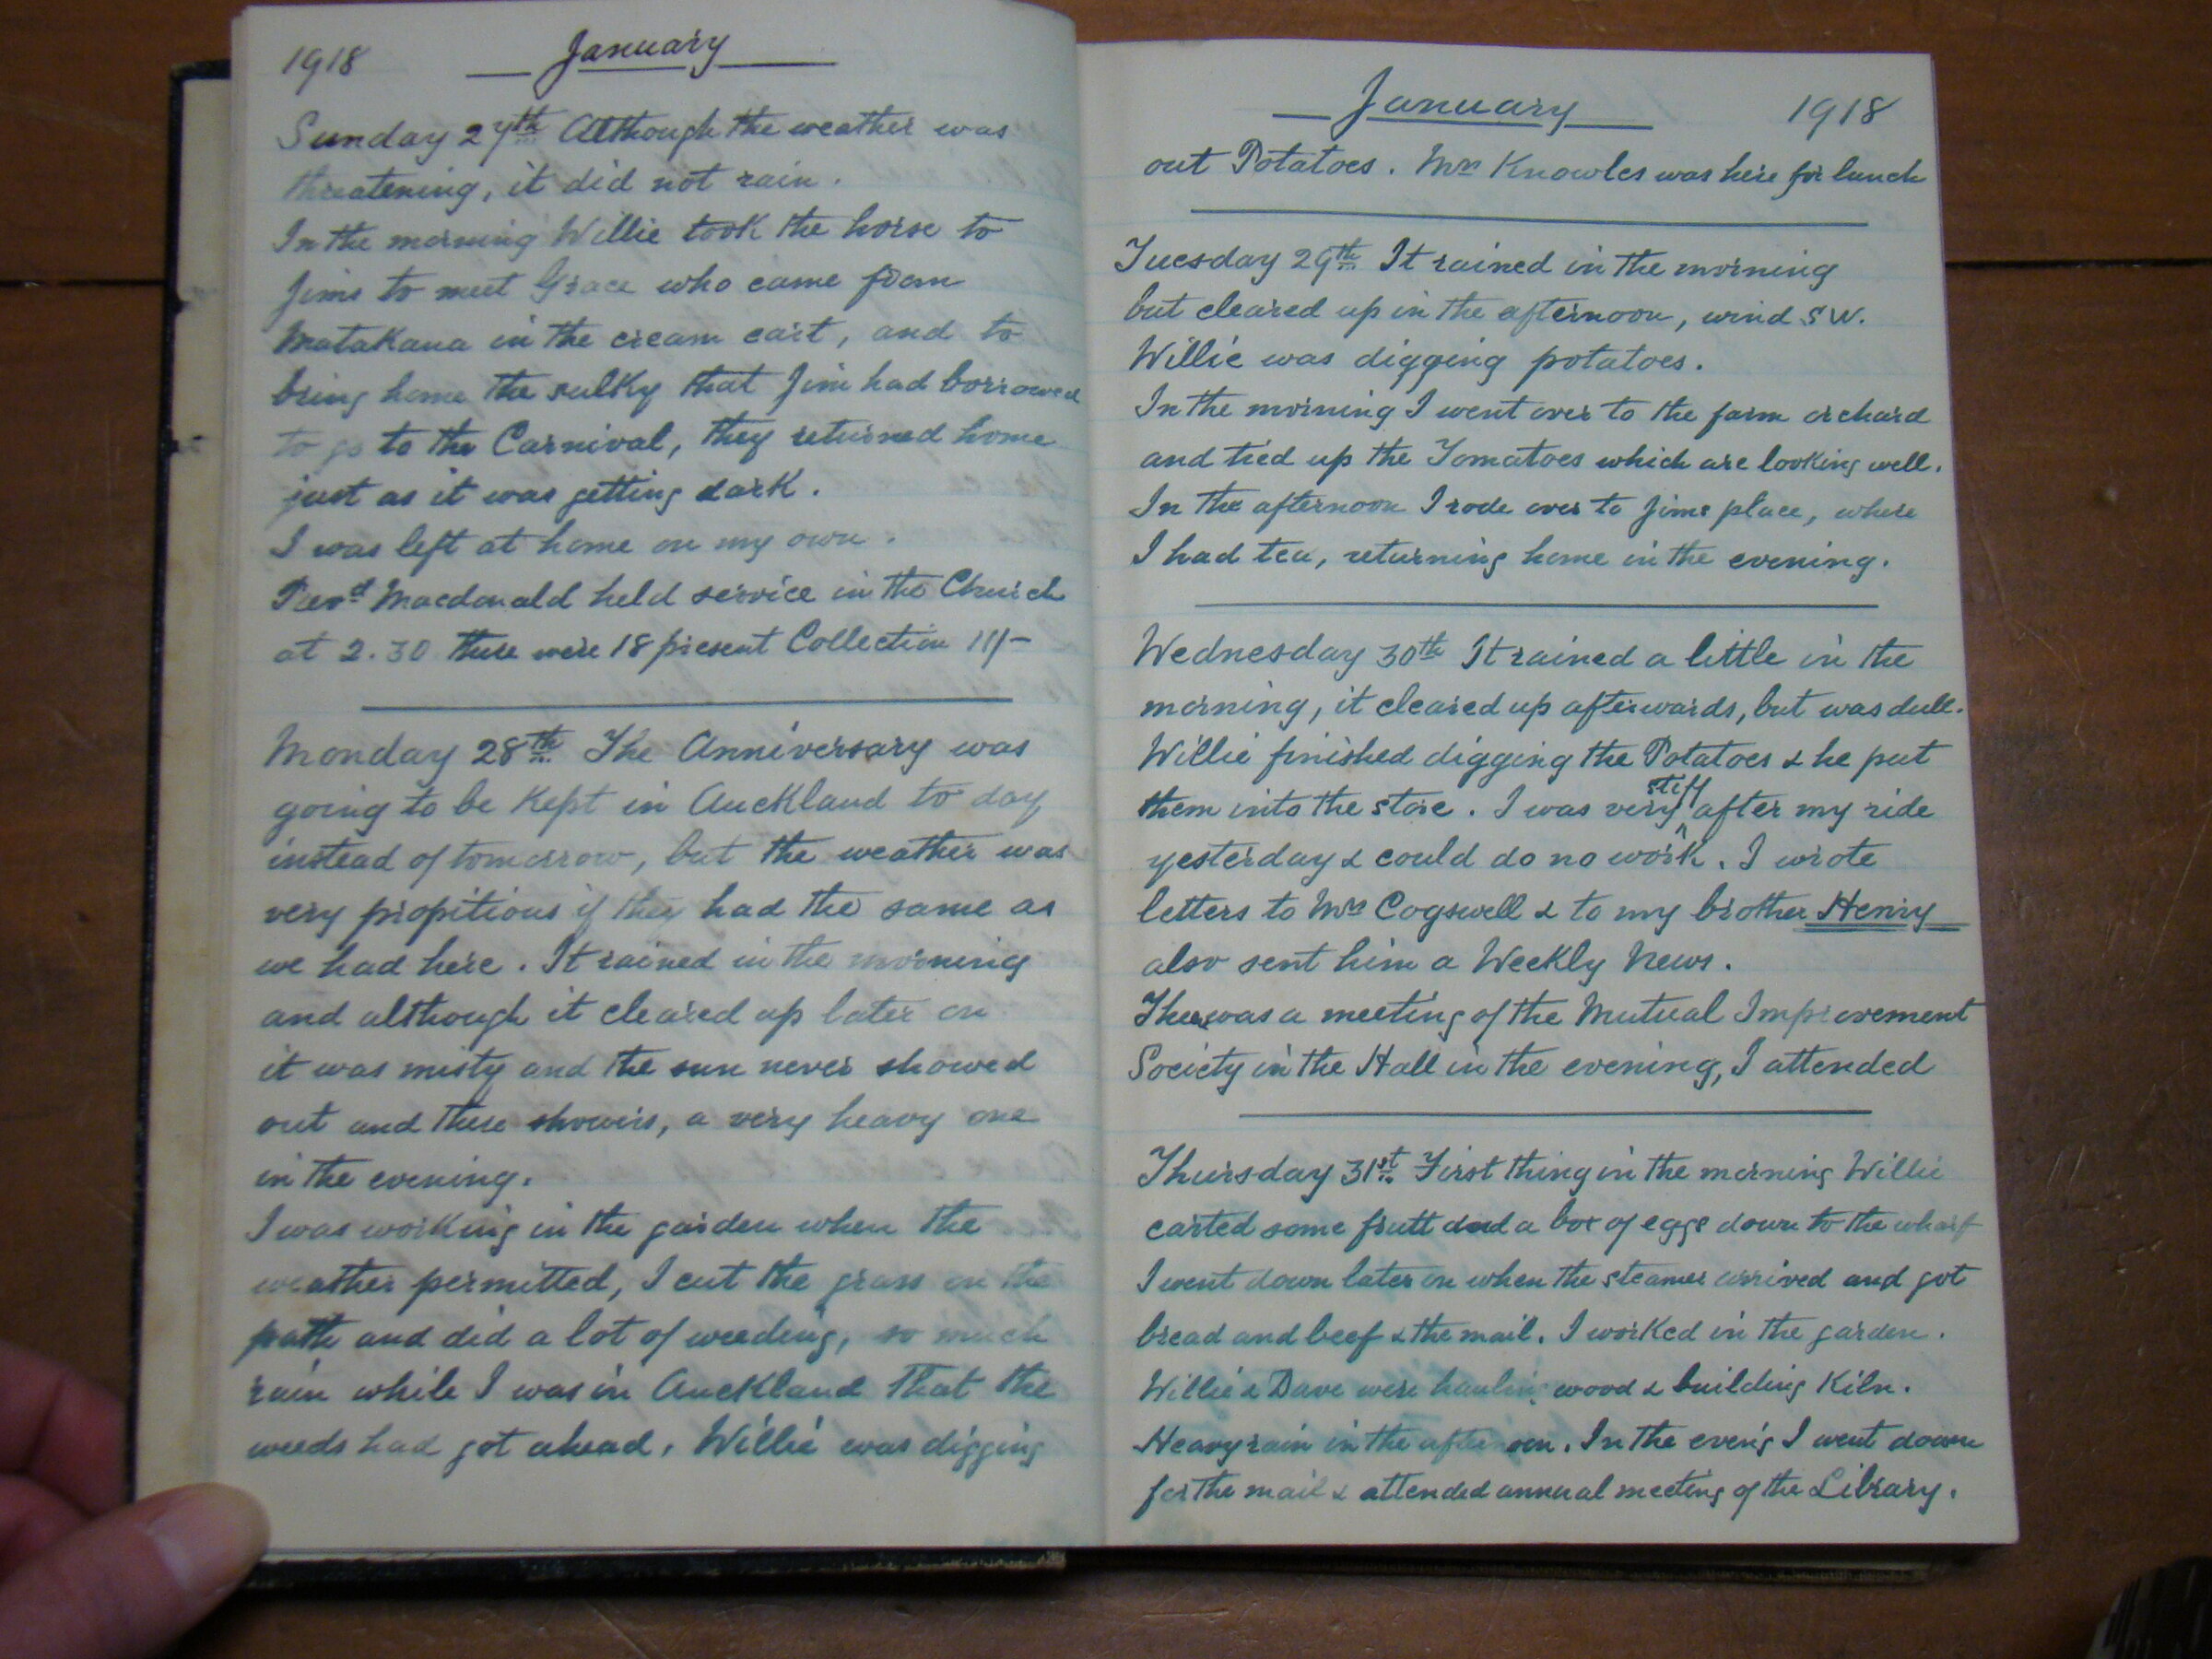 1918 January
Sunday 27th Although the weather was
threatening, it did not rain.
In the morning Willie took the horse to
Jims to meet Grace who came from
Matakana in the cream cart, and to
bring home the sulky that Jim had borrowed
to go to the Carnival, they returned home
just as it was getting dark.
I was left at home on my own.
Revd Macdonald held service in the Church
at 2.30 there were 18 present Collection 11/-
Monday 28th The Anniversary was
going to be kept in Auckland to day
instead of tomorrow, but the weather was
very propitious if they had the same as
we had here. It rained in the morning
and although it cleared up later on
it was misty and the sun never showed
out and there showers, a very heavy one
in the evening.
I was working in the garden when the
weather permitted, I cut the grass on the
path and did a lot of weeding, so much
rain while I was in Auckland that the
weeds had got ahead. Willie was digging
January 1918
out Potatoes. Mrs Knowles was here for lunch
Tuesday 29th It rained in the morning
but cleared up in the afternoon, wind SW.
Willie was digging potatoes.
In the morning I went over to the farm orchard
and tied up the Tomatoes which are looking well.
In the afternoon I rode over to Jims place, where
I had tea, returning home in the evening.
Wednesday 30th It rained a little in the
morning, it cleared up afterwards, but was dull.
Willie finished digging the Potatoes & he put
them into the store. I was very stiff after my ride
yesterday & could do no work. I wrote
letters to Mrs Cogswell & to my brother Henry
also sent him a Weekly News.
There was a meeting of the Mutual Improvement
Society in the Hall in the evening, I attended
Thursday 31st First thing in the morning Willie
carted some fruit and a box of eggs down to the wharf
I went down later on when the steamer arrived and got
bread and beef & the mail. I worked in the garden.
Willie & Dave were hauling wood & building Kiln.
Heavy rain in the afternoon. In the even'g I went down
for the mail & attended annual meeting of the Library.